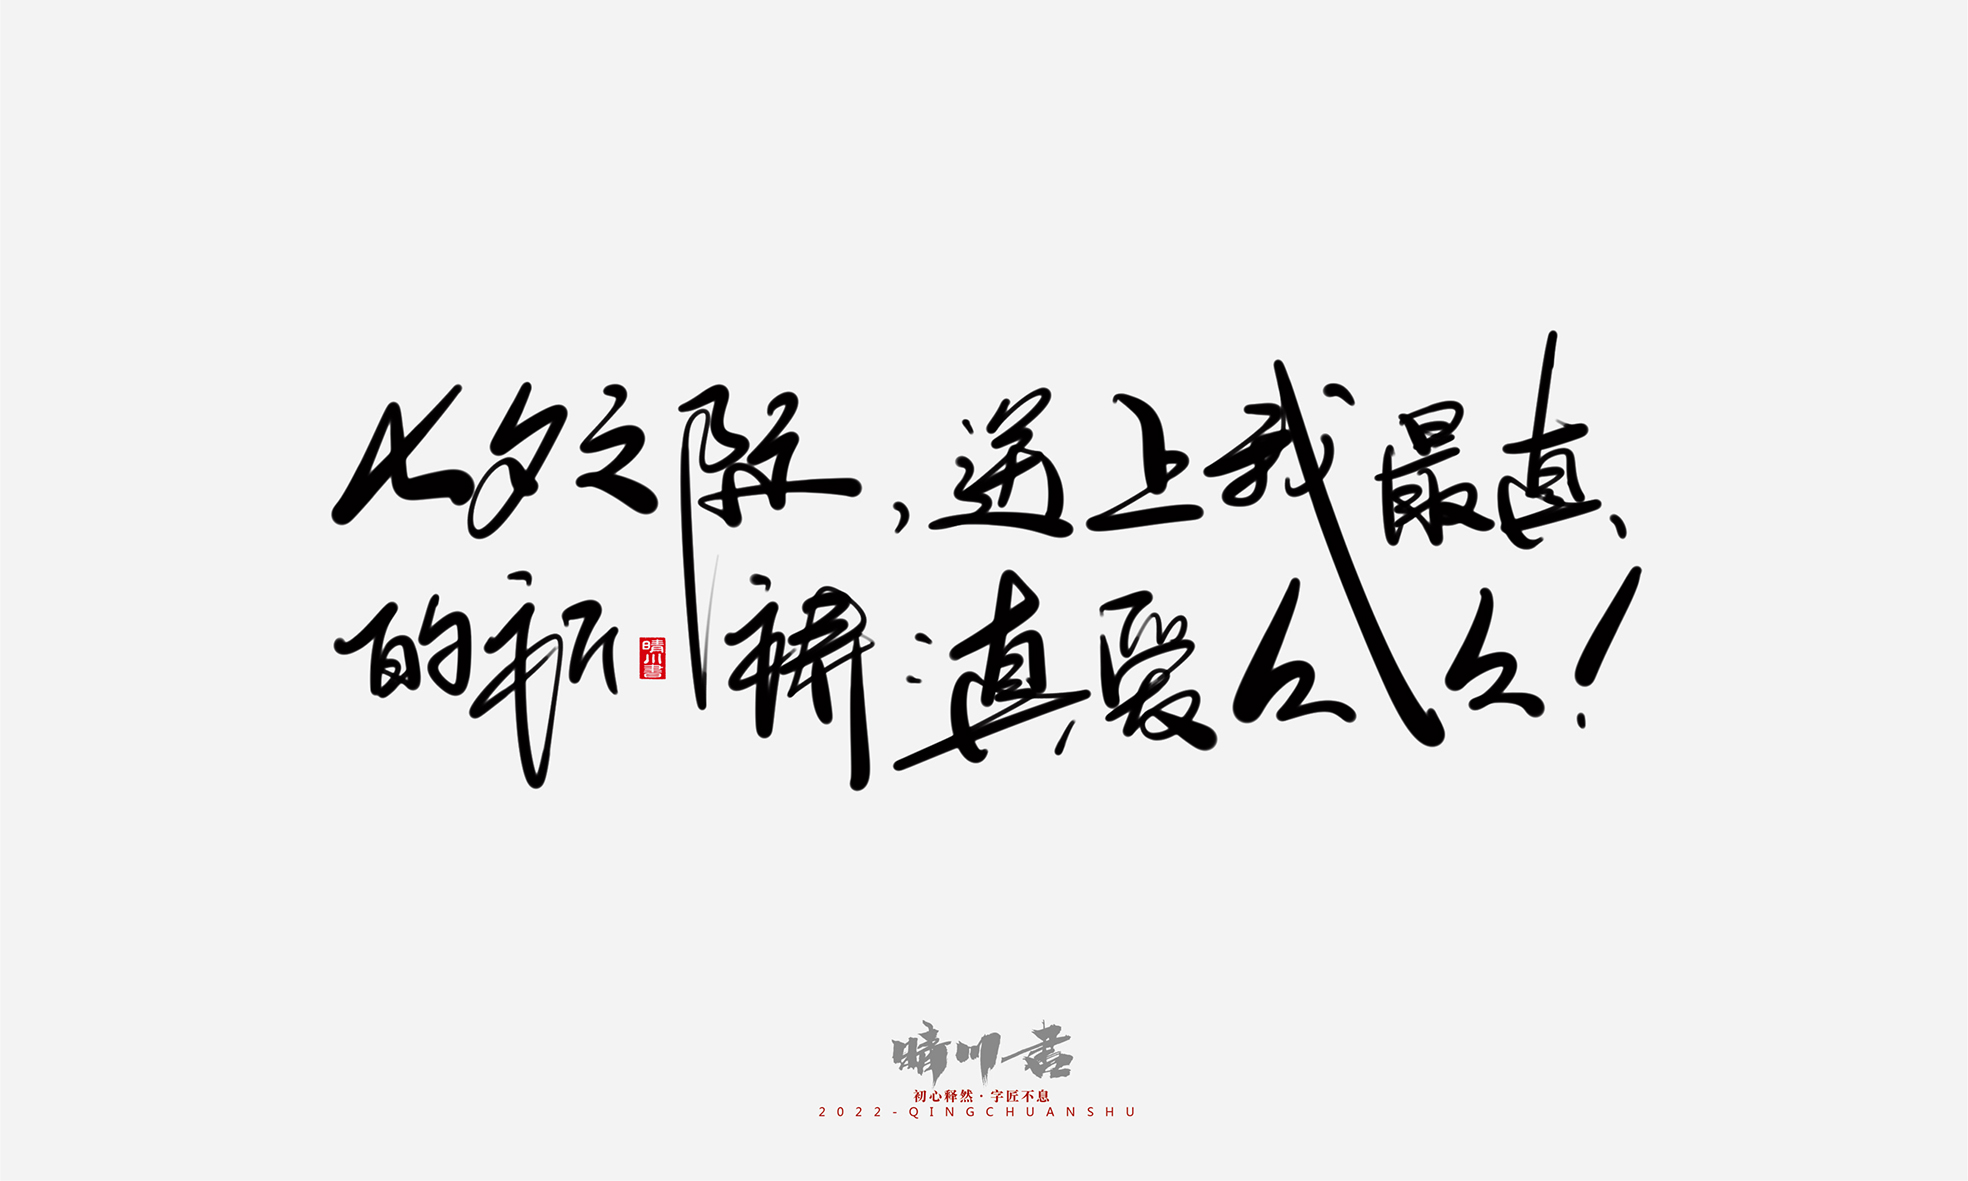 七夕之际，送上我最真
的祈祷：真爱久久！
晴川書
晴川書
初心释然·字匠不息
2022-QINGCHUANSHU